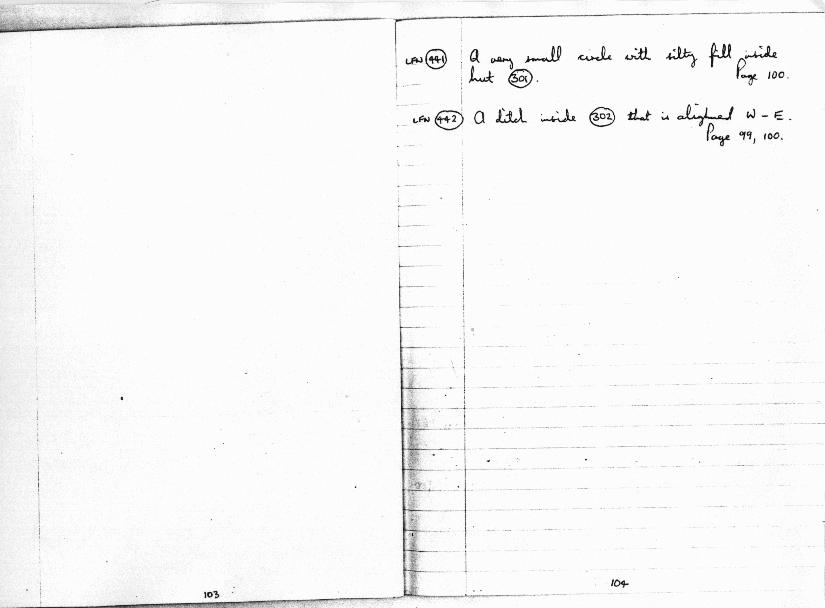 LFN 441 A very small circle with silty fill inside
hut 301. Page 100.
LFN 442 A ditch inside 302 that is alighned W - E.
Page 99, 100.
103
104